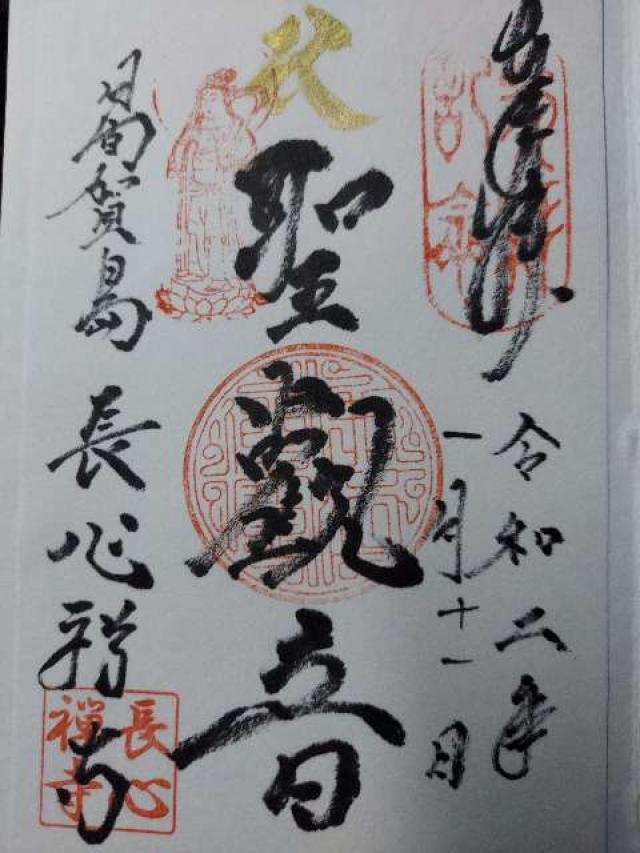 奉拝
令和二年
一月十一日
聖觀音
日間賀島 長心禅寺
長心
禅寺